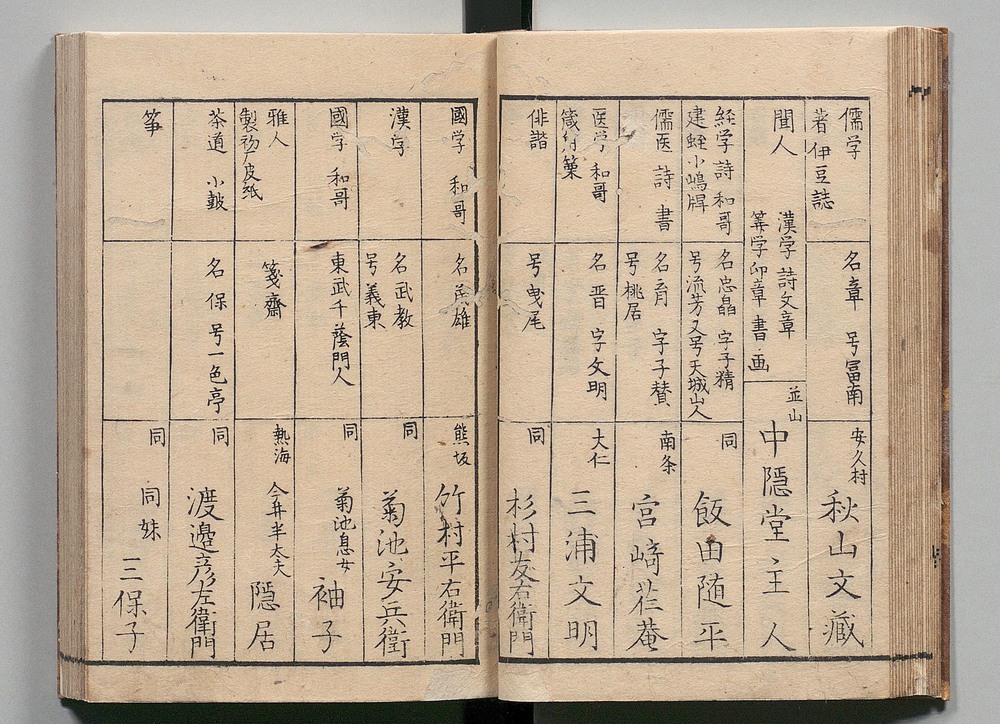 儒学
著伊豆誌
名章 号冨南
安久村
秋山文蔵
聞人
漢学 詩文章
筭学 印章 書 画
並山
中隠堂主人
経学 詩 和哥
建蛭小嶋牌
名忠晶 字子精
号流芳又号天城山人
同
飯田随平
儒医 詩 書
名育 字子賛
号桃居
南条
宮﨑菴
医学 和哥
名晋 字文明
大仁
三浦文明
俳諧
号曳尾
同
杉村友右衛門
國学 和哥
名茂雄
熊坂
竹村平右衛門
漢学
名武教
号義東
同
菊池安兵衛
國学 和哥
東武千蔭門人
同
菊池息女
袖子
雅人
製初鴈皮紙
箋齋
熱海
今井半太夫
隠居
茶道 小皷
名保 号一色亭
同
渡邉彦左衛門
筝
同
同妹
三保子